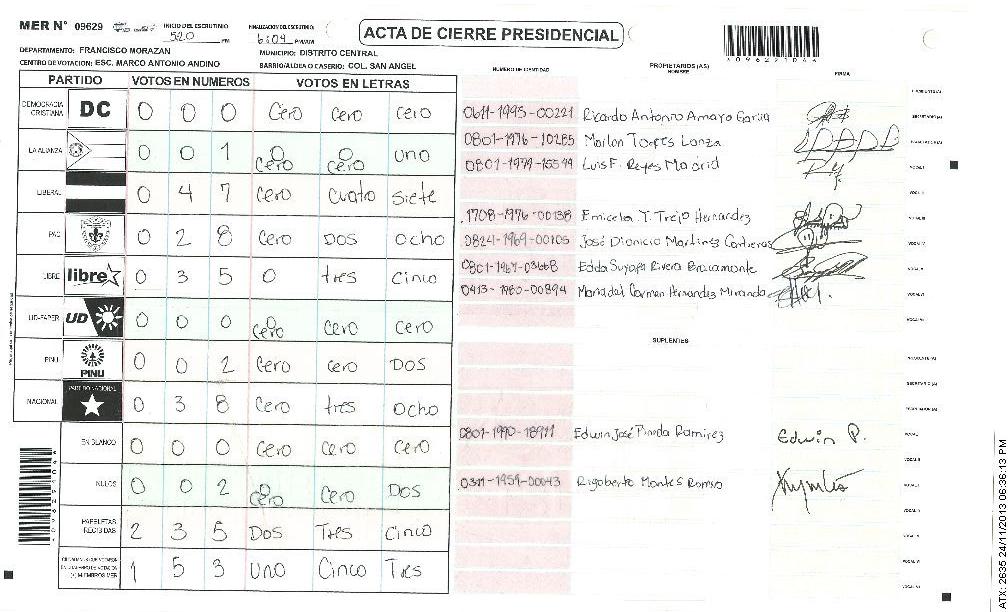 MER N° 09629
INICIO DEL ESCRUTINIO
5:20 PM
FINALIZACION DEL ESCRUTINIO
6:04 PM/AM
ACTA DE CIERRE PRESIDENCIAL
DEPARTAMENTO: FRANCISCO MORAZAN
MUNICIPIO: DISTRITO CENTRAL
CENTRO DE VOTACION: ESC. MARCO ANTONIO ANDINO
BARRIO/ALDEA O CASERIO: COL. SAN ANGEL
NUMERO DE IDENTIDAD PROPIETARIOS (AS) NOMBRE FIRMA
PARTIDO VOTOS EN NUMEROS VOTOS EN LETRAS
DEMOCRACIA CRISTIANA DC 0 0 0 Cero cero cero
LA ALIANZA 0 0 1 0 cero 0 cero uno
LIBERAL 0 4 7 Cero cuatro siete
PAC 0 2 8 Cero DOS ocho
LIBRE libre 0 3 5 0 tres cinco
UD-FAPER UD 0 0 0 0 cero cero cero
PINU PINU 0 0 2 Cero cero DOS
NACIONAL PARTIDO NACIONAL 0 3 8 Cero tres ocho
EN BLANCO 0 0 0 Cero Cero Cero
NULOS 0 0 2 0 cero Cero DOS
PAPELETAS RECIBIDAS 2 3 5 Dos Tres Cinco
1 5 3 Uno Cinco Tres
0611-1993-00221 Ricardo Antonio Amaya Garcia
0801-1976-10285 Marlon Torres Lanza
0801-1979-15599 Luis F. Reyes Madrid
1708-1976-00138 Emicela Y. Trejo Hernandez
0824-1969-00105 José Dionicio Martinez Contreras
0801-1967-03668 Edda Suyapa Rivera Bracamonte
0413-1980-00894 Maria del Carmen Hernandez Miranda
SUPLENTES
0801-1990-18911 Edwin José Pineda Ramirez Edwin P.
0311-1959-00043 Rigoberto Montes Romero
ATX: 2635 24/11/2013 06:36:13 PM